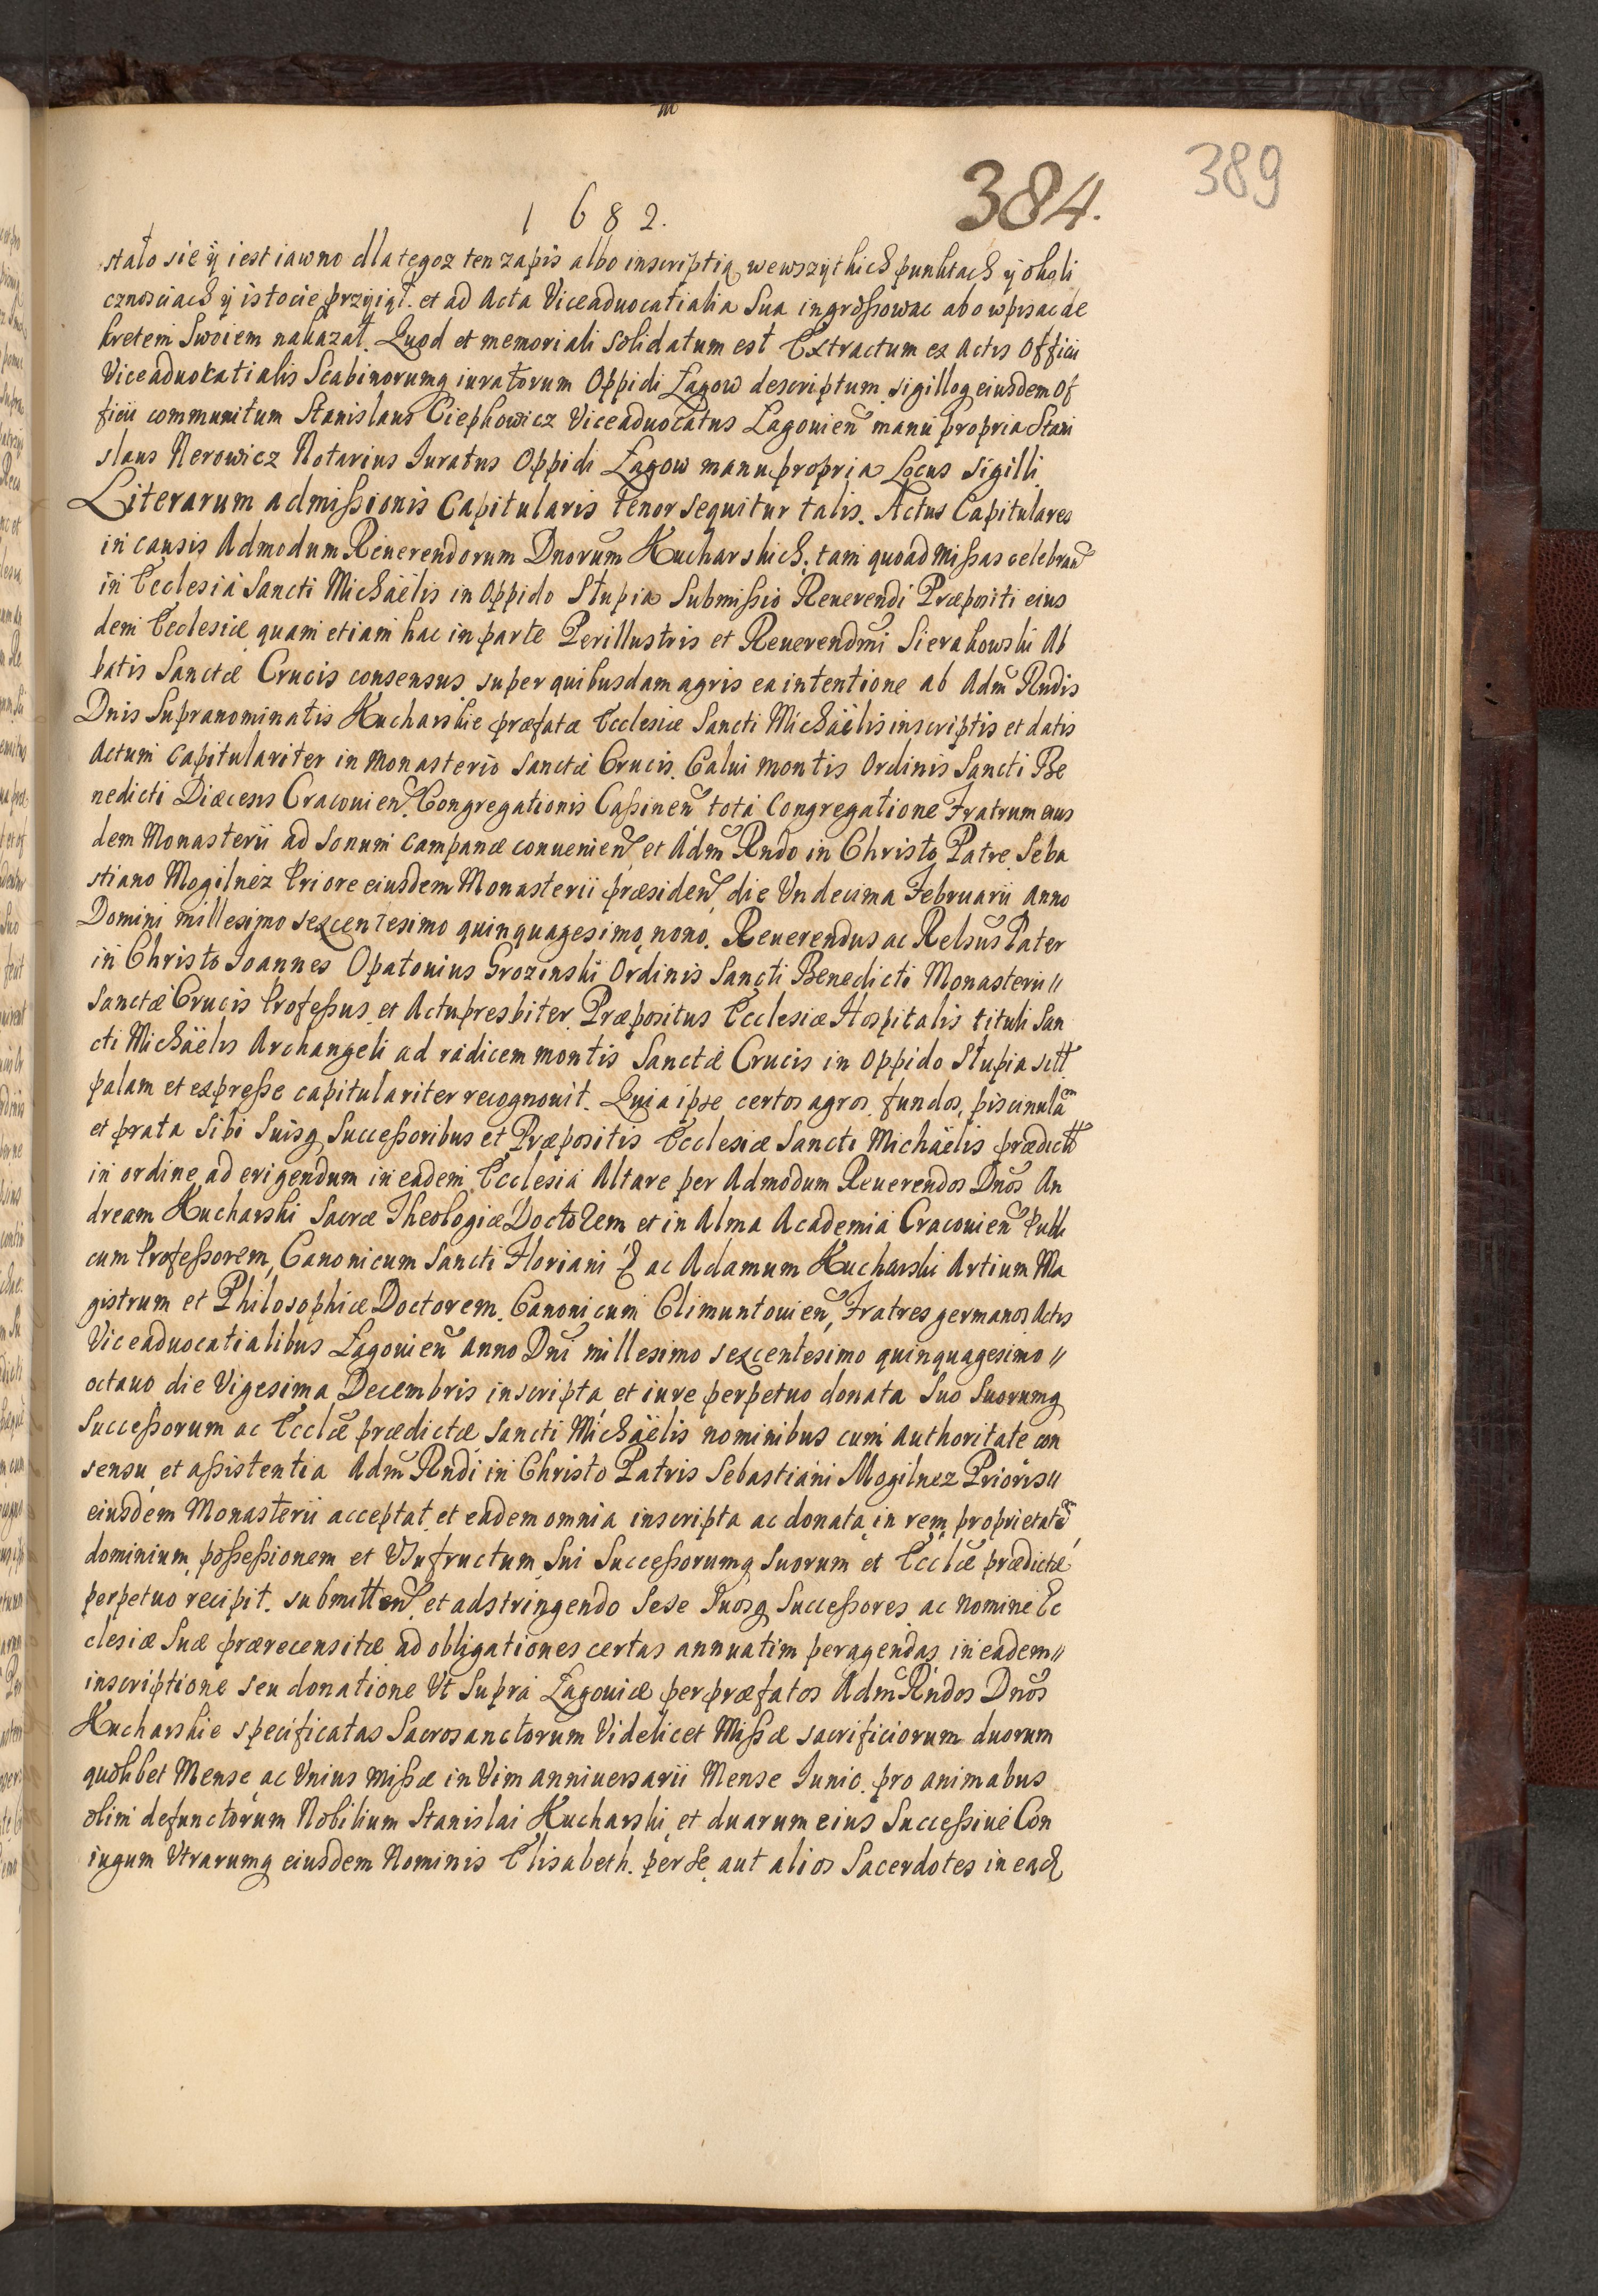 389
384.
1682.
stało sie ÿ iest iawno dla tegoz ten zapis albo inscriptią wewszÿtkich punktach ÿ okoli
cznosciach ÿ istocie przÿiął. et ad Acta Viceaduocatialia Sua ingrossowac abo wpisac de
kretem Swoiem nakazał. Quod et memoriali solidatum est Extractum ex Actis Officii
Viceaduocatialis Scabinorumq iuratorum Oppidi Łagow descriptum sigilloq eiusdem Of
ficii communitum Stanislaus Ciepkowicz Viceaduocatus Lagouien manu propria Stani
slaus Nerowicz Notarius Iuratus Oppidi Łagow manu propria Locus Sigilli
Literarum admissionis Capitularis tenor sequitur talis. Actus Capitulares
in causis Admodum Reuerendorum Dnorum Kucharskich. tam quoad Missas celebran
in Ecclesia Sancti Michaëlis in Oppido Słupia Submissio Reuerendi Præpositi eius
dem Ecclesiæ quam etiam hac in parte Perillustris et Reuerendmi Sierakowski Ab
batis Sanctæ Crucis consensus super quibusdam agris ea intentione ab Adm Rndis
Dnis Supranominatis Kucharskie præfatæ Ecclesiæ Sancti Michaëlis inscriptis et datis
Actum Capitulariter in Monasterio Sanctæ Crucis. Calui montis Ordinis Sancti Be
nedicti Diæcesis Cracouien. Congregationis Cassinen tota Congregatione Fratrum eius
dem Monasterii ad Sonum Campanæ conuenien, et Adm Rndo in Christo Patre Seba
stiano Mogilnez Priore eiusdem Monasterii præsiden, die Vndecima Februarii Anno
Domini millesimo sexcentesimo quinquagesimo nono. Reuerendus ac Relsus Pater
in Christo Ioannes Opatouius Grozinski Ordinis Sancti Benedicti Monasterii //
Sanctæ Crucis Professus et Actu presbiter Præpositus Ecclesiæ Hospitalis tituli San
cti Michaëlis Archangeli ad radicem montis Sanctæ Crucis in Oppido Słupia sitt
palam et expresse capitulariter recognouit. Quia ipse certos agros, fundos, piscinulam
et prata Sibi Suisq Successoribus et Præpositis Ecclesiæ Sancti Michaëlis prædictt
in ordine ad erigendum in eadem Ecclesia Altare per Admodum Reuerendos Dnos An
dream Kucharski Sacræ Theologiæ Doctorem et in Alma Academia Cracouien Publi
cum Professorem, Canonicum Sancti Floriani & ac Adamum Kucharski Artium Ma
gistrum et Philosophiæ Doctorem. Canonicum Climuntouien, Fratres germanos Actis
Viceaduocatialibus Łagouien Anno Dni millesimo sexcentesimo quinquagesimo //
octauo die Vigesima Decembris inscripta et iure perpetuo donata Suo Suorumq
Successorum ac Ecclæ prædictæ Sancti Michaëlis nominibus cum Authoritate con
sensu et assistentia Adm Rndi in Christo Patris Sebastiani Mogilnez Prioris //
eiusdem Monasterii acceptat et eadem omnia inscripta ac donata in rem proprietatem
dominium, possessionem et Vsufructum Sui Successorumq Suorum et Ecclæ prædictæ
perpetuo recipit. submitten, et adstringendo Sese Suosq Successores ac nomine Ec
clesiæ Suæ prærecensitæ ad obligationes certas annuatim peragendas in eadem //
inscriptione seu donatione Vt Supra Łagouiæ per præfatos Adm Rndos Dnos
Kucharskie specificatas Sacrosanctorum Videlicet Missæ sacrificiorum duorum
quolibet Mense ac Vnius Missæ in Vim anniuersarii Mense Iunio. pro animabus
olim defunctorum Nobilium Stanislai Kucharski et duarum eius Successiue Con
iugum Vtrarumq eiusdem Nominis Elisabeth. per Se aut alios Sacerdotes in ead